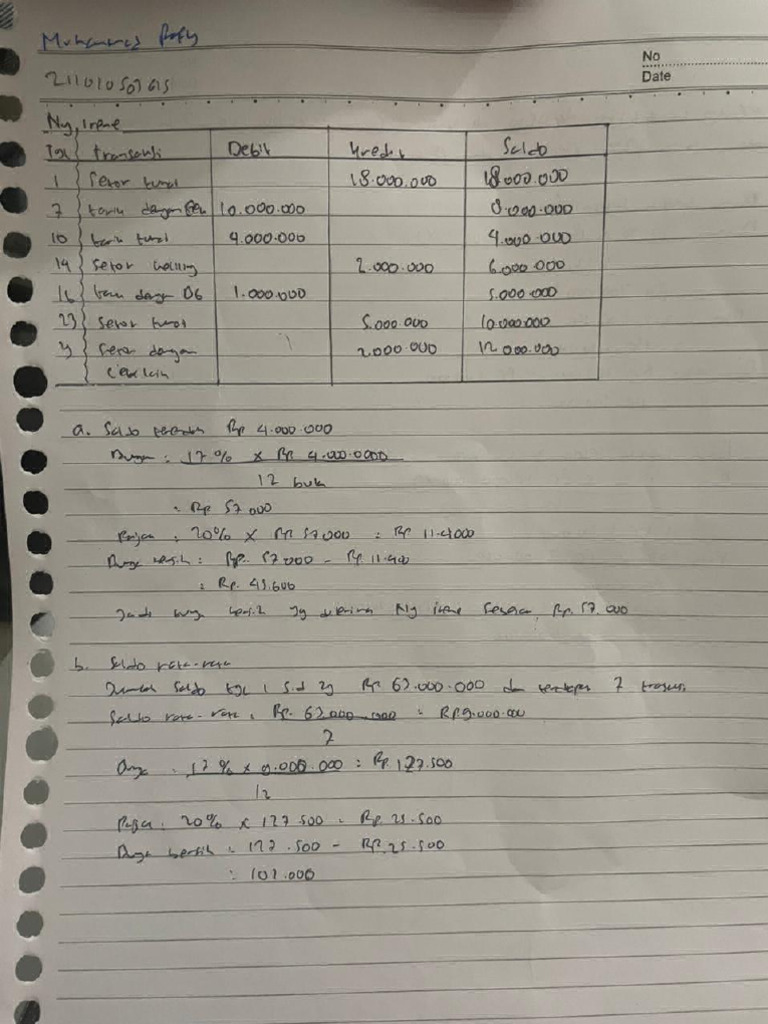 Muhammad Rafly
No
Date
211010507615
Ny, Irene
Tgl transaksi Debit Kredit Saldo
1 Setor tunai 18.000.000 18.000.000
7 tarik dengan 10.000.000 8.000.000
10 tarik tunai 4.000.000 4.000.000
14 Setor kliring 2.000.000 6.000.000
16 tarik dengan 1.000.000 5.000.000
23 Setor tunai 5.000.000 10.000.000
Setor dengan 2.000.000 12.000.000
Cek lain
a. Saldo terendah Rp 4.000.000
Bunga : 17% x Rp 4.000.0000
12 bulan
= Rp 57.000
Pajak : 20% x Rp 57.000 = Rp 11.4000
Bunga bersih : Rp. 57.000 - Rp 11.400
: Rp. 45.600
Jadi bunga bersih yg diterima Ny irene sebesar Rp. 57.000
b. Saldo rata-rata
Jumlah Saldo tgl 1 s.d 29 Rp 63.000.000 dan terdapat 7 transaksi
Saldo rata-rata : Rp. 63.000.000 = Rp 9.000.000
7
Bunga : 17% x 9.000.000 : Rp 127.500
12
Pajak : 20% x 127.500 = Rp. 25.500
Bunga bersih : 127.500 - Rp. 25.500
: 102.000